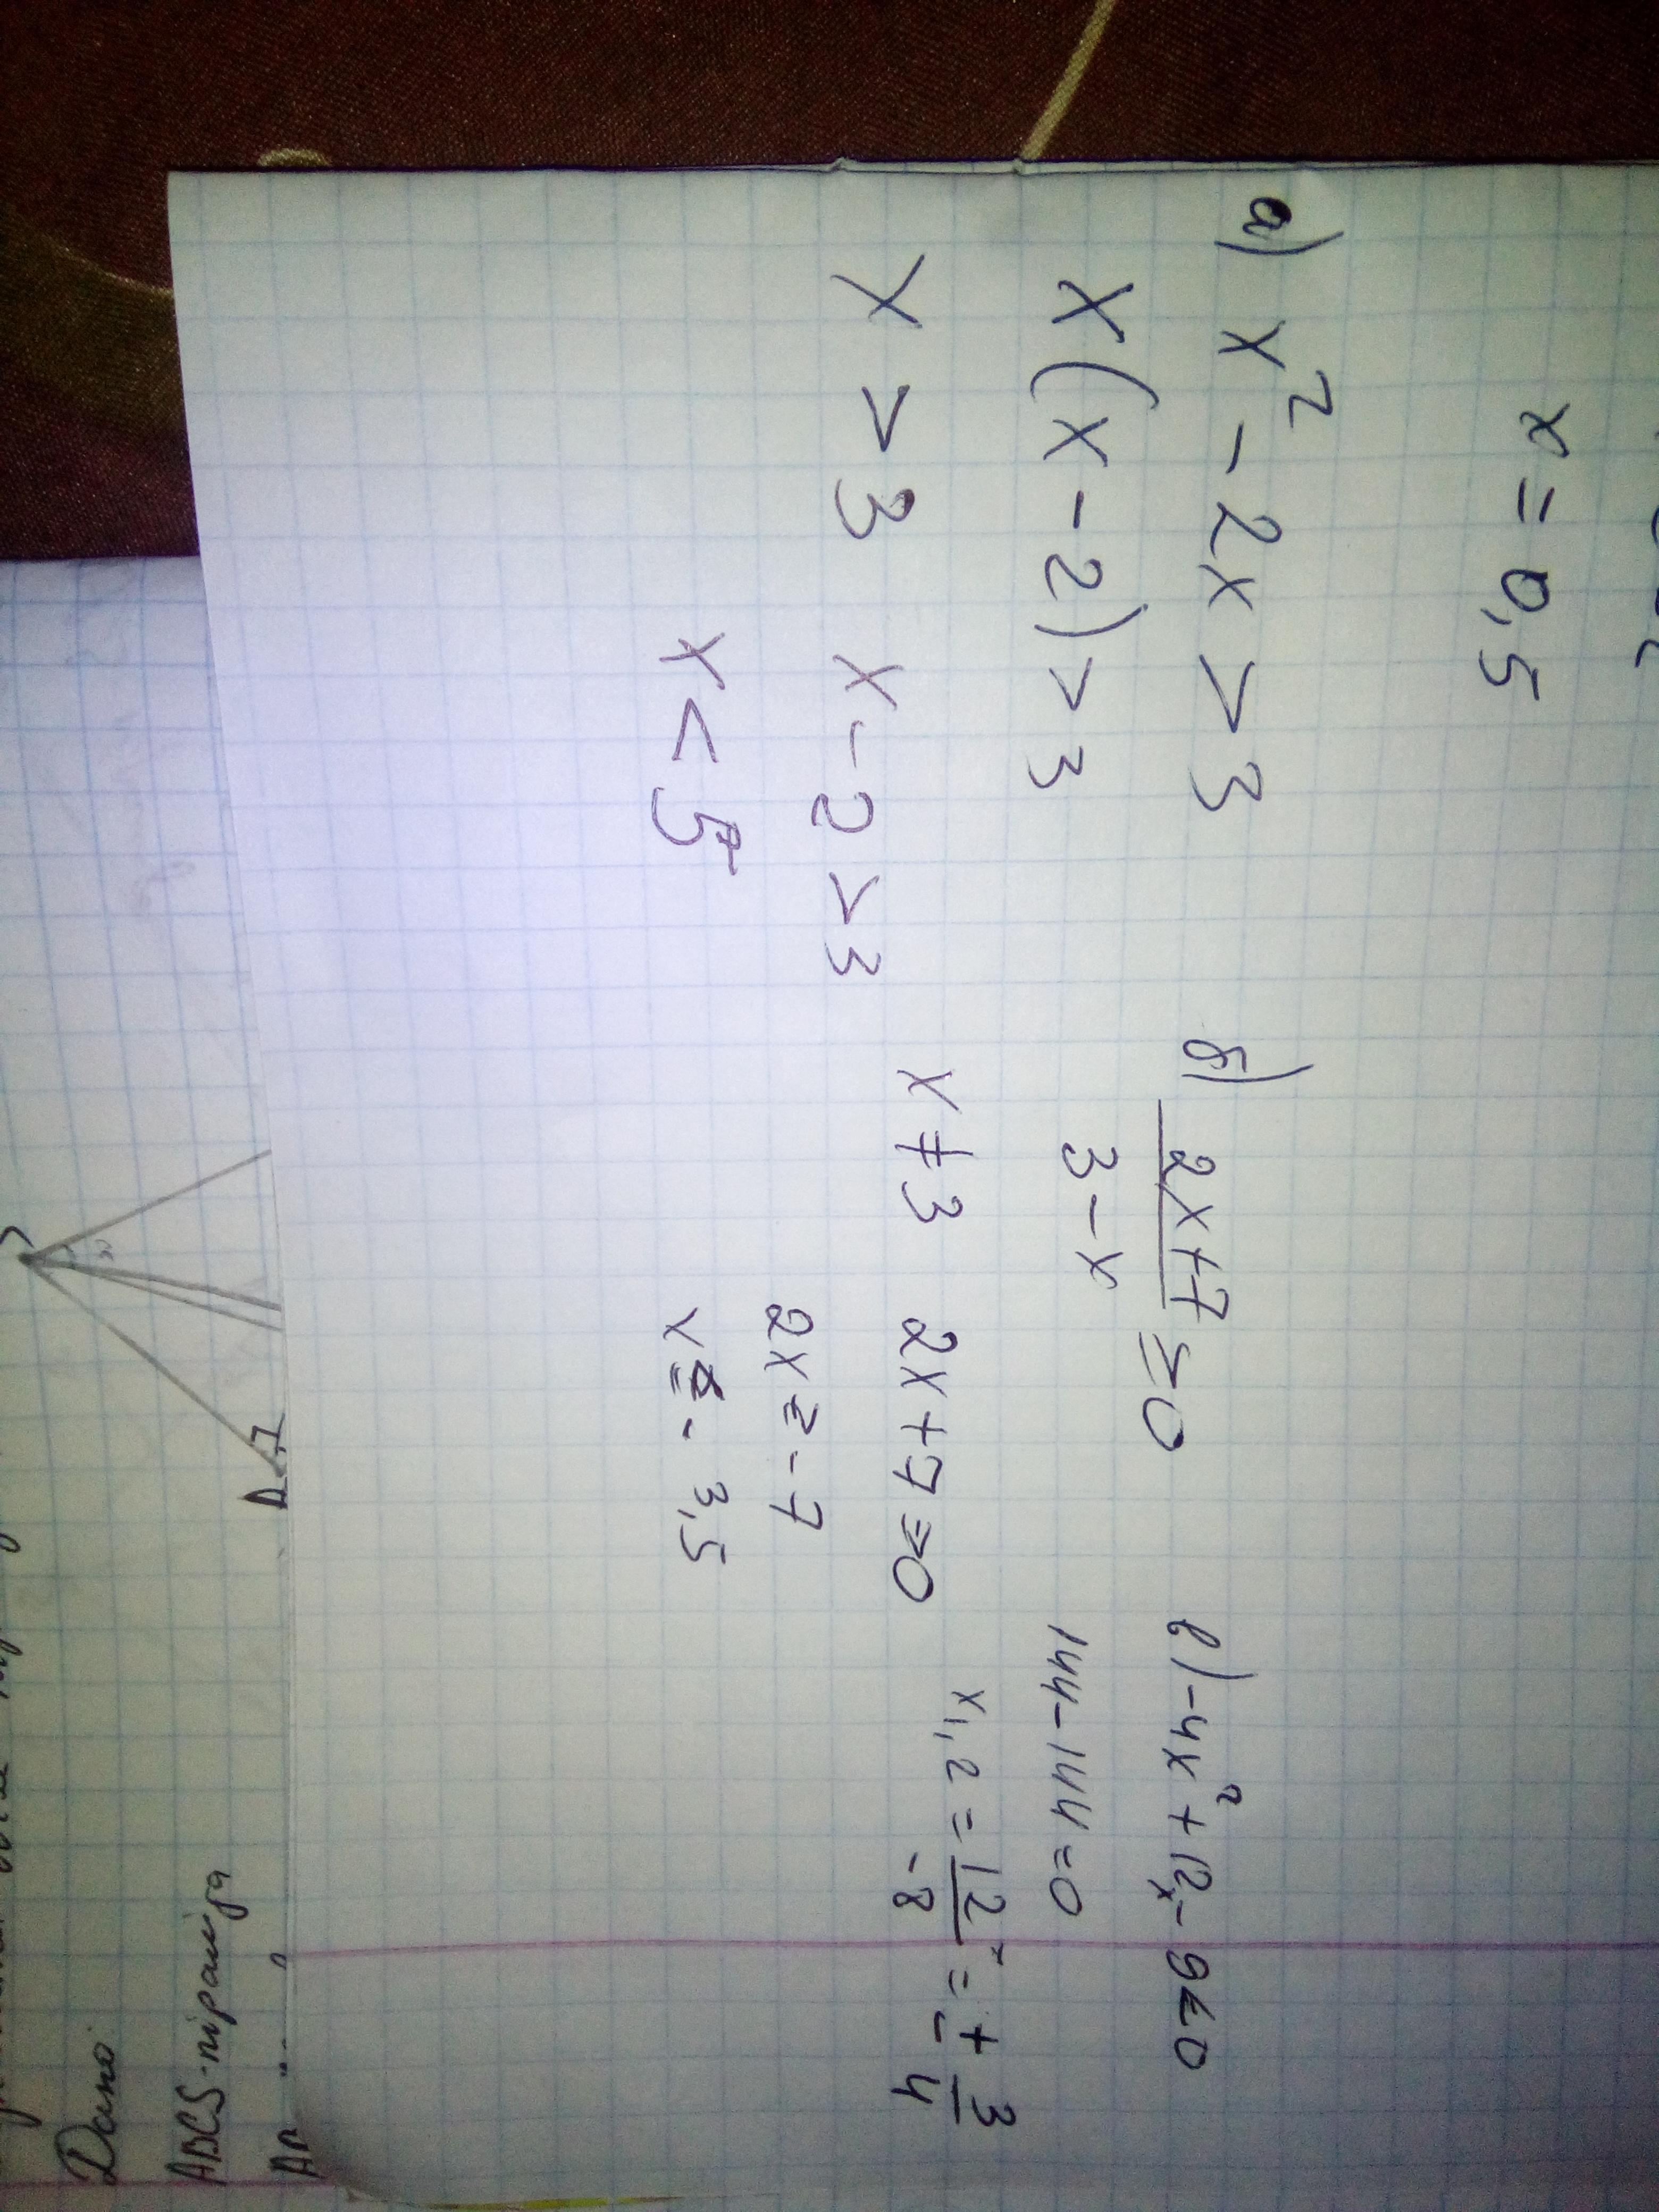 x = 0,5
а) x² - 2x > 3
x(x - 2) > 3
x > 3 x - 2 > 3
x < 5
б) \frac{2x+7}{3-x} ≥ 0
x ≠ 3 2x + 7 ≥ 0
2x ≥ -7
- 3,5
в) -4x² + 12x - 9 ≤ 0
144 - 144 = 0
x1,2 = \frac{12}{-8} = ± \frac{3}{4}
A
Дано:
ABCS-піраміда